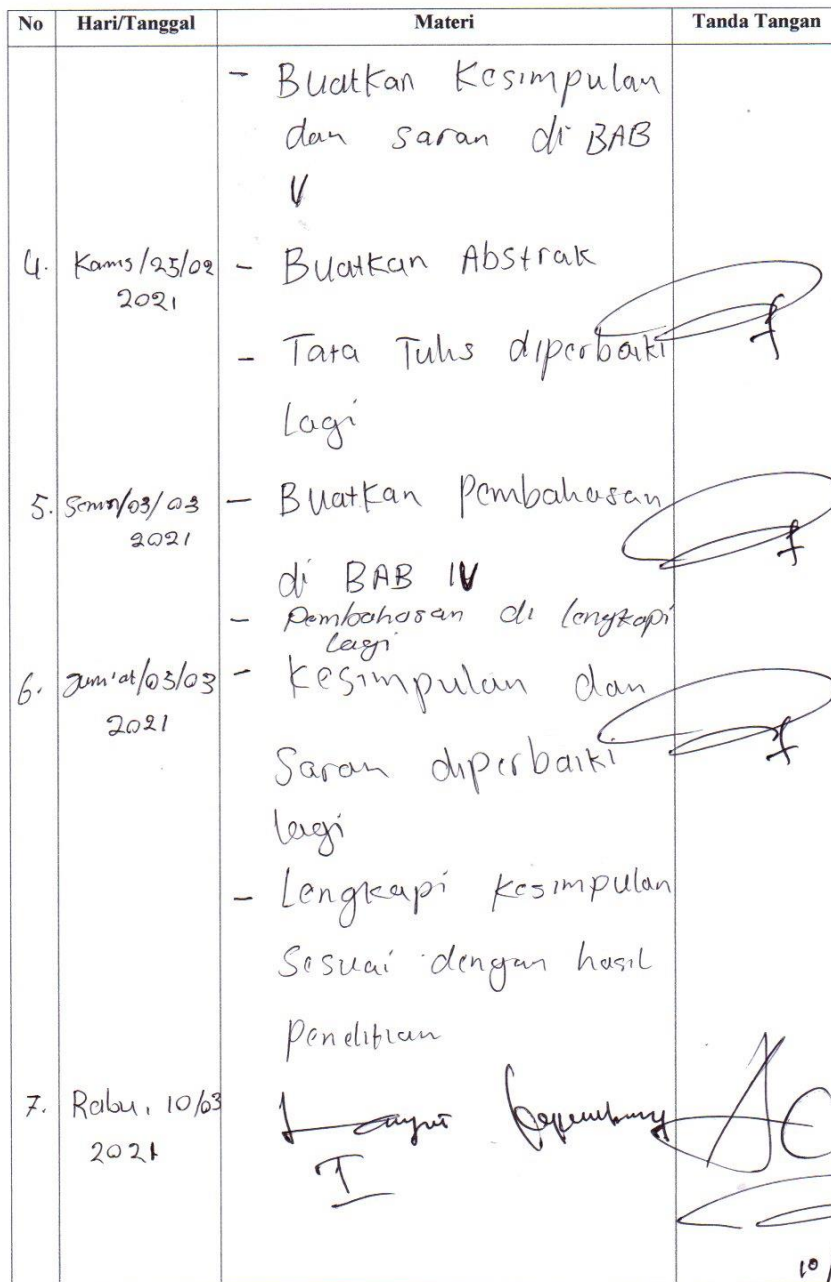 No Hari/Tanggal Materi Tanda Tangan
- Buatkan Kesimpulan
dan saran di BAB
V
4. Kamis/25/02 - Buatkan Abstrak
2021
- Tata Tulis diperbaiki
Lagi
5. Senin/03/03 - Buatkan Pembahasan
2021
di BAB IV
- Pembahasan di lengkapi
lagi
6. Jum'at/05/03 - Kesimpulan dan
2021
Saran diperbaiki
lagi
- Lengkapi kesimpulan
Sesuai dengan hasil
Penelitian
7. Rabu, 10/03
2021
I
10/